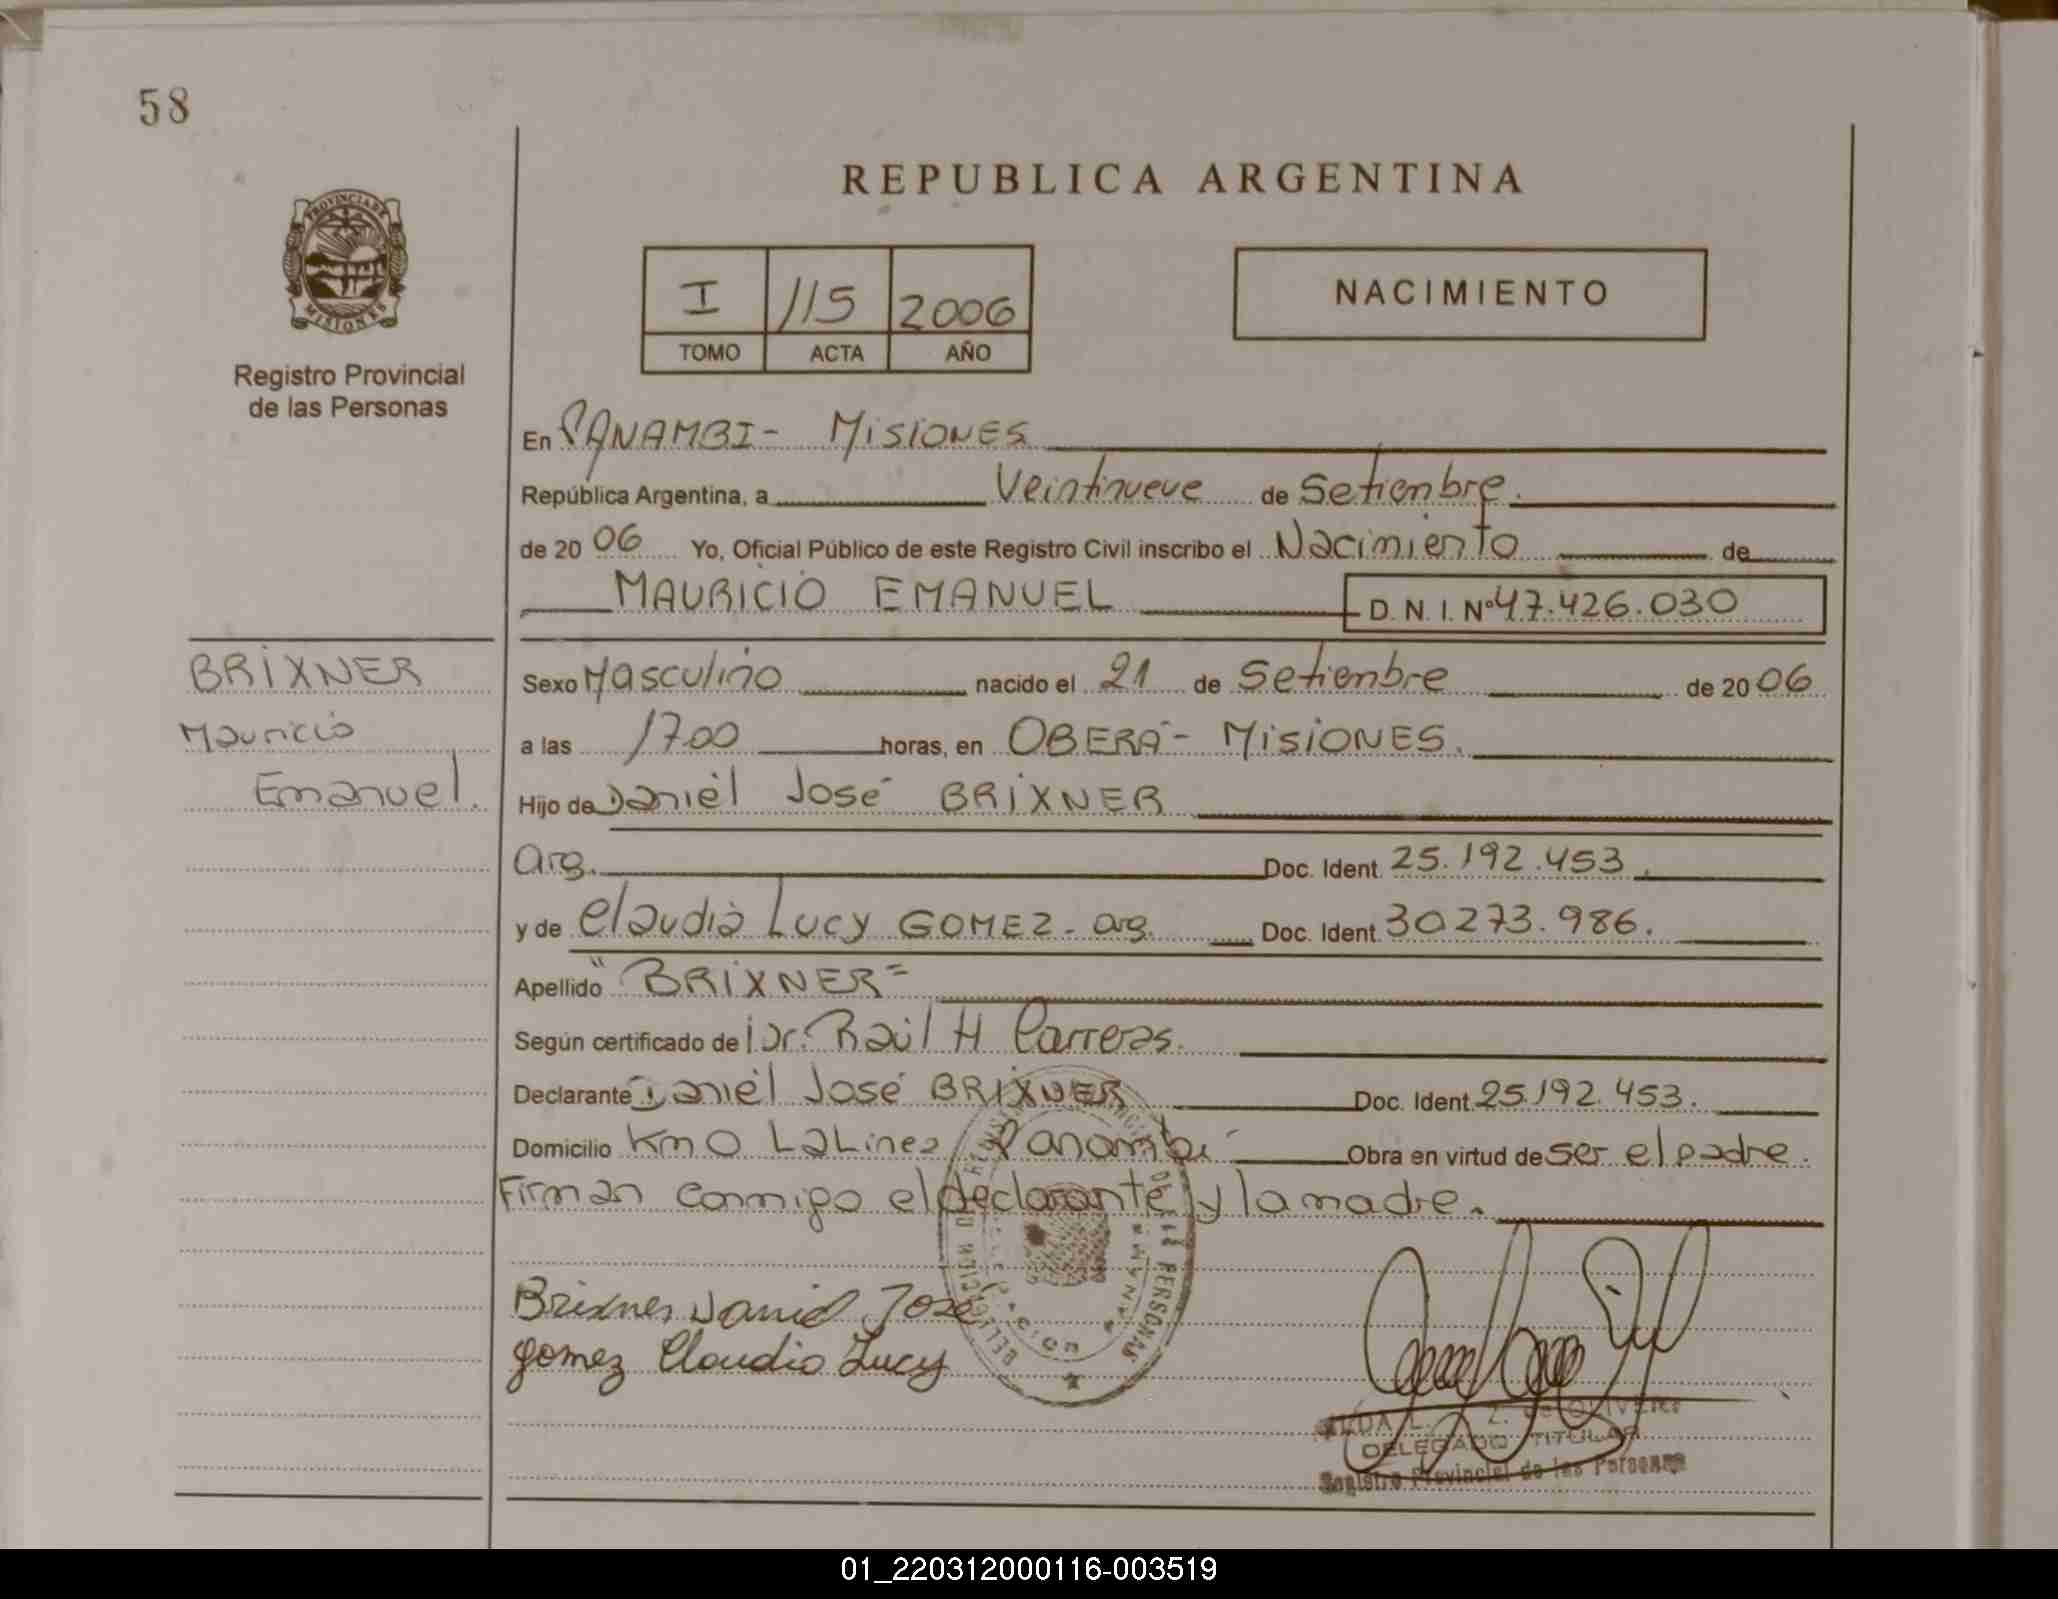 58
REPUBLICA ARGENTINA
PROVINCIA DE
MISIONES
Registro Provincial
de las Personas
I 115 2006
TOMO ACTA AÑO
NACIMIENTO
En PANAMBI - MISIONES
República Argentina, a Veintinueve de Setiembre.
de 2006 Yo, Oficial Público de este Registro Civil inscribo el Nacimiento de
MAURICIO EMANUEL D. N. I. Nº 47.426.030
BRIXNER
Mauricio
Emanuel.
Sexo Masculino nacido el 21 de Setiembre de 2006
a las 1700 horas, en OBERÁ - MISIONES.
Hijo de Daniel José BRIXNER
Arg. Doc. Ident. 25.192.453.
y de Claudia Lucy GOMEZ - arg. Doc. Ident. 30273.986.
Apellido "BRIXNER"
Según certificado de Dr. Raúl H Carreras.
Declarante Daniel José BRIXNER Doc. Ident. 25.192.453.
Domicilio Km 0 La Linea Panambí Obra en virtud de ser el padre.
Firman conmigo el declarante y la madre.
Brixner Daniel Jose
Gomez Claudia Lucy
DE LAS PERSONAS
DELEGADO TITULAR
Registro Provincial de las Personas
01_220312000116-003519